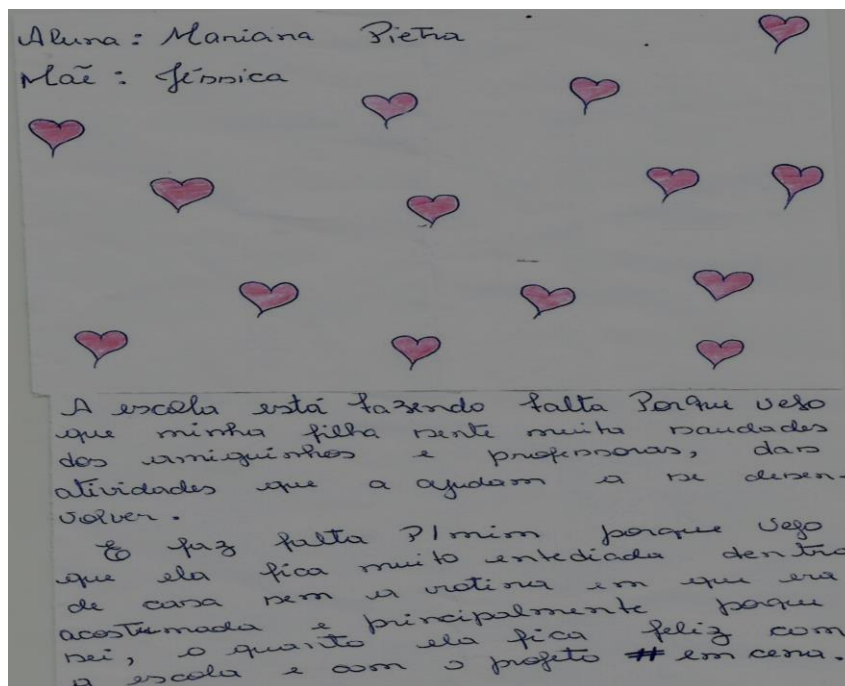 Aluna: Mariana Pietra
Mãe: Jéssica
A escola está fazendo falta Porque vejo
que minha filha sente muita saudades
dos amiguinhos e professoras, das
atividades que a ajudam a se desen-
volver.
E faz falta P/ mim porque vejo
que ela fica muito entediada dentro
de casa sem a rotina em que era
acostumada e principalmente porque
sei, o quanto ela fica feliz com
a escola e com o projeto # em cena.